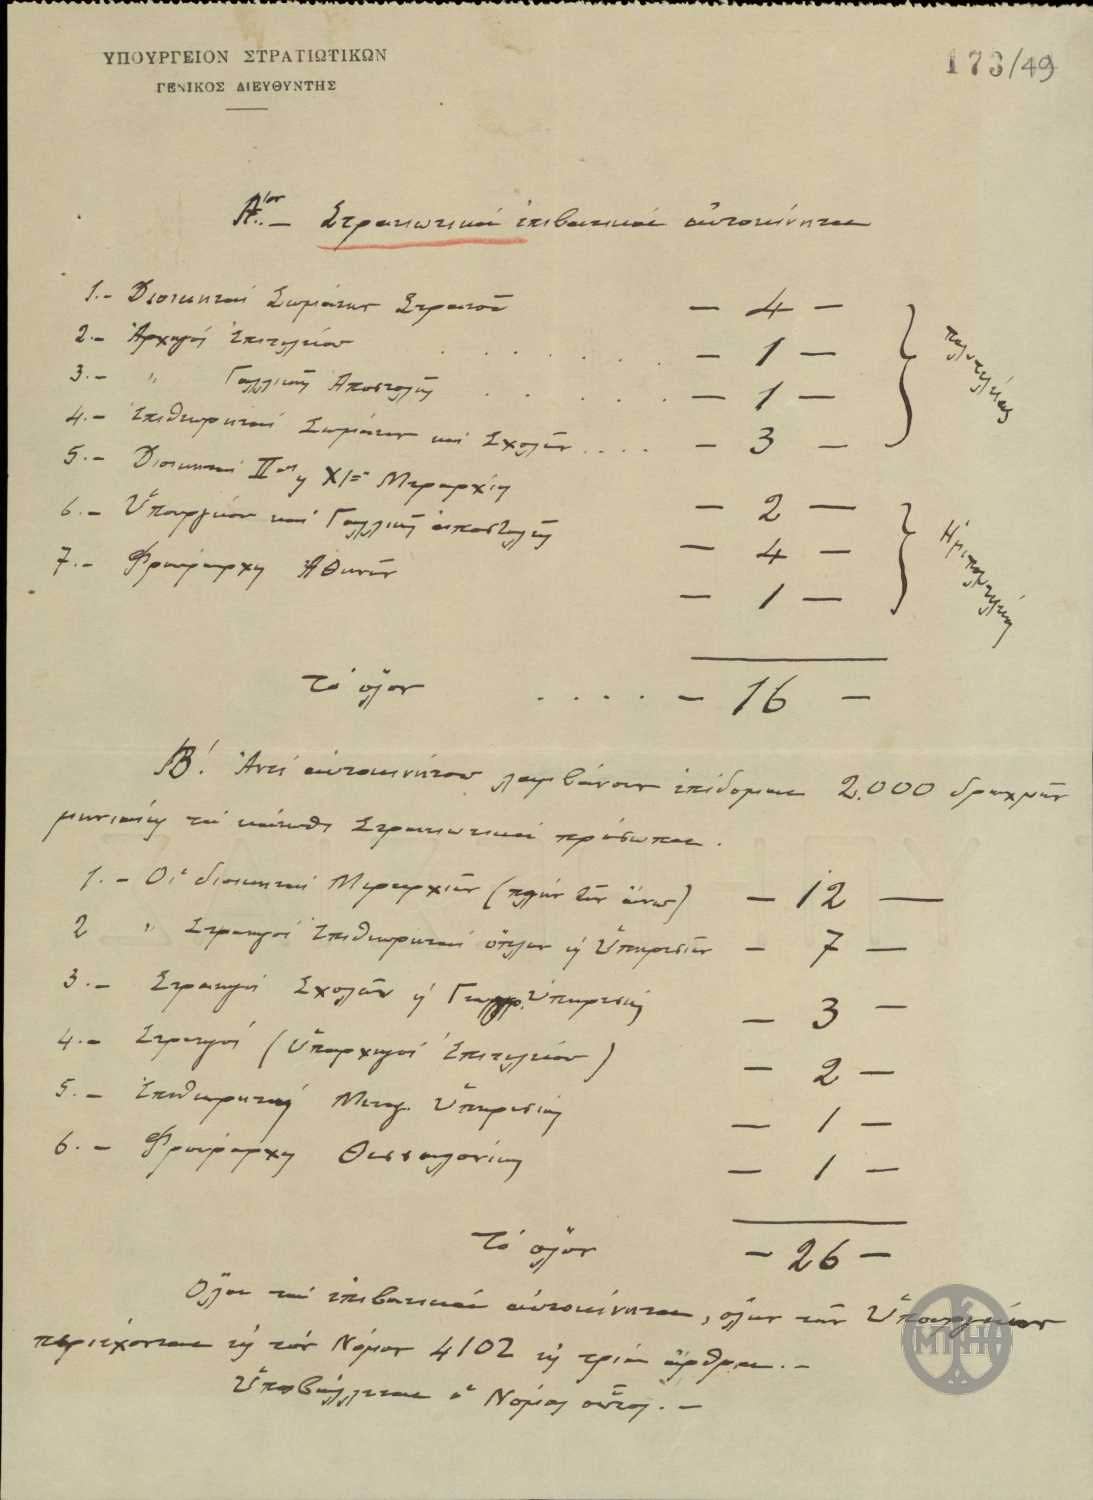 ΥΠΟΥΡΓΕΙΟΝ ΣΤΡΑΤΙΩΤΙΚΩΝ
ΓΕΝΙΚΟΣ ΔΙΕΥΘΥΝΤΗΣ
173/49
Α.ον — Στρατιωτικά ἐπιβατικά αὐτοκίνητα
1.- Διοικηταί Σωμάτων Στρατοῦ — 4 —
2.- Ἀρχηγοί Ἐπιτελείου . . . . . . . — 1 —
3.- " Γαλλικῆς Ἀποστολῆς . . . . . — 1 —
4.- Ἐπιθεωρηταί Σωμάτων καί Σχολῶν .... — 3 —
πολυτελείας
5.- Διοικηταί ΙΙας ἤ ΧΙης Μεραρχίας — 2 —
6.- Ὑπουργείον καί Γαλλικῆς ἀποστολῆς — 4 —
7.- Φρούραρχος Ἀθηνῶν — 1 —
Ἡμιπολυτελείας
Τό ὅλον . . . . — 16 —
Β'. Ἀντί αὐτοκινήτου λαμβάνουν ἐπίδομα 2.000 δραχμῶν
μηνιαίως τά κάτωθι Στρατιωτικά πρόσωπα.
1.- Οἱ διοικηταί Μεραρχιῶν (πλήν τῶν ἄνω) — 12 —
2 " Στρατηγοί Ἐπιθεωρηταί ὅπλων ἤ Ὑπηρεσιῶν — 7 —
3.- Στρατηγοί Σχολῶν ἤ Γεωγρ. Ὑπηρεσίας — 3 —
4.- Στρατηγοί (Ὑπαρχηγοί Ἐπιτελείου) — 2 —
5.- Ἐπιθεωρητής Μεταγ. Ὑπηρεσίας — 1 —
6.- Φρούραρχος Θεσσαλονίκης — 1 —
Τό ὅλον — 26 —
Ὅλα τά ἐπιβατικά αὐτοκίνητα, ὅλων τῶν Ὑπουργείων
περιέχονται εἰς τόν Νόμον 4102 εἰς τρία ἄρθρα.-
Ὑποβάλλεται ὁ Νόμος οὗτος.-
ΜΠΗΛ